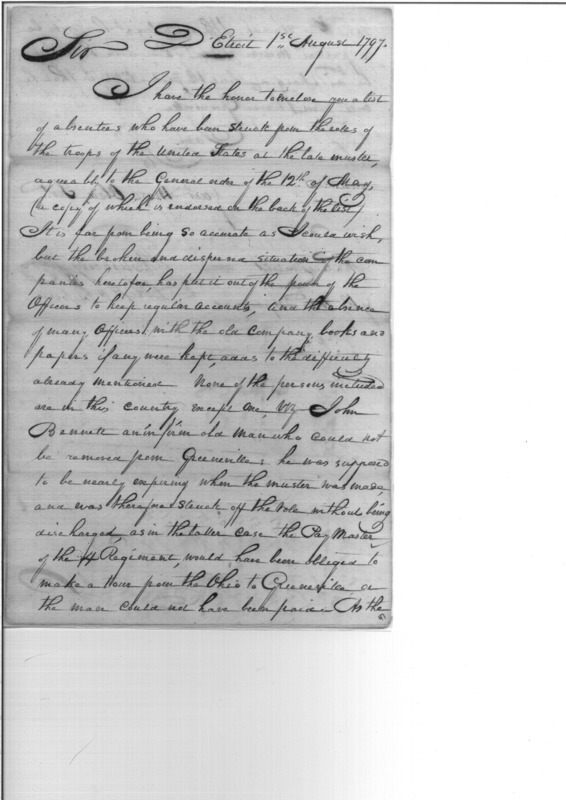 Sir D'Etroit 1st August 1797.
I have the honor to enclose you a list
of absentees who have been struck from the roles of
the troops of the United States at the late muster,
agreeable to the General order of the 12th of May,
(a copy of which is endorsed on the back of the list)
It is far from being so accurate as I could wish,
but the broken and dispersed situation of the com
panies heretofore, has put it out of the power of the
Officers to keep regular accounts, and the absence
of many Officers with the old company books and
papers if any were kept, adds to the difficulty
already mentioned None of the persons included
are in this country except one, Viz John
Bennett an infirm old man who could not
be removed from Greeneville; he was supposed
to be nearly expiring when the muster was made,
and was therefore struck off the role without being
discharged, as in the latter case the Pay Master
of the 4 Regiment, would have been obliged to
make a tour from the Ohio to Greeneville or
the man could not have been paid. As the